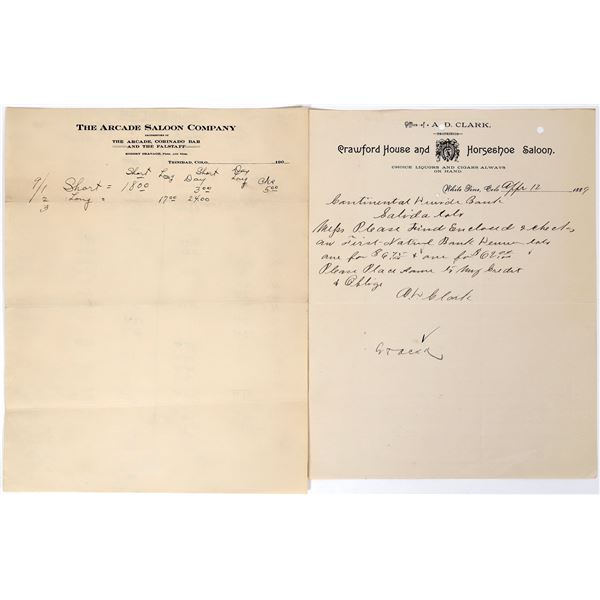 THE ARCADE SALOON COMPANY
PROPRIETORS OF
THE ARCADE, CORINADO BAR
AND THE FALSTAFF
ROBERT SAVAGE, PRES. AND MGR.
TRINIDAD, COLO. 190
Short Long Short Day
Day Long Chk
9/1 Short = 18.00 3.00 5.00
2 Long = 17.00 24.00
3
Office of A. D. CLARK,
PROPRIETOR
Crawford House and Horseshoe Saloon.
CHOICE LIQUORS AND CIGARS ALWAYS
ON HAND.
White Pine, Colo Apr 12 1889
Continental Bank
Salida Colo
Please Find Enclosed 2 checks
on First National Bank Colo
one for & one for
Please Place Same to My Credit
& Oblige
A D Clark